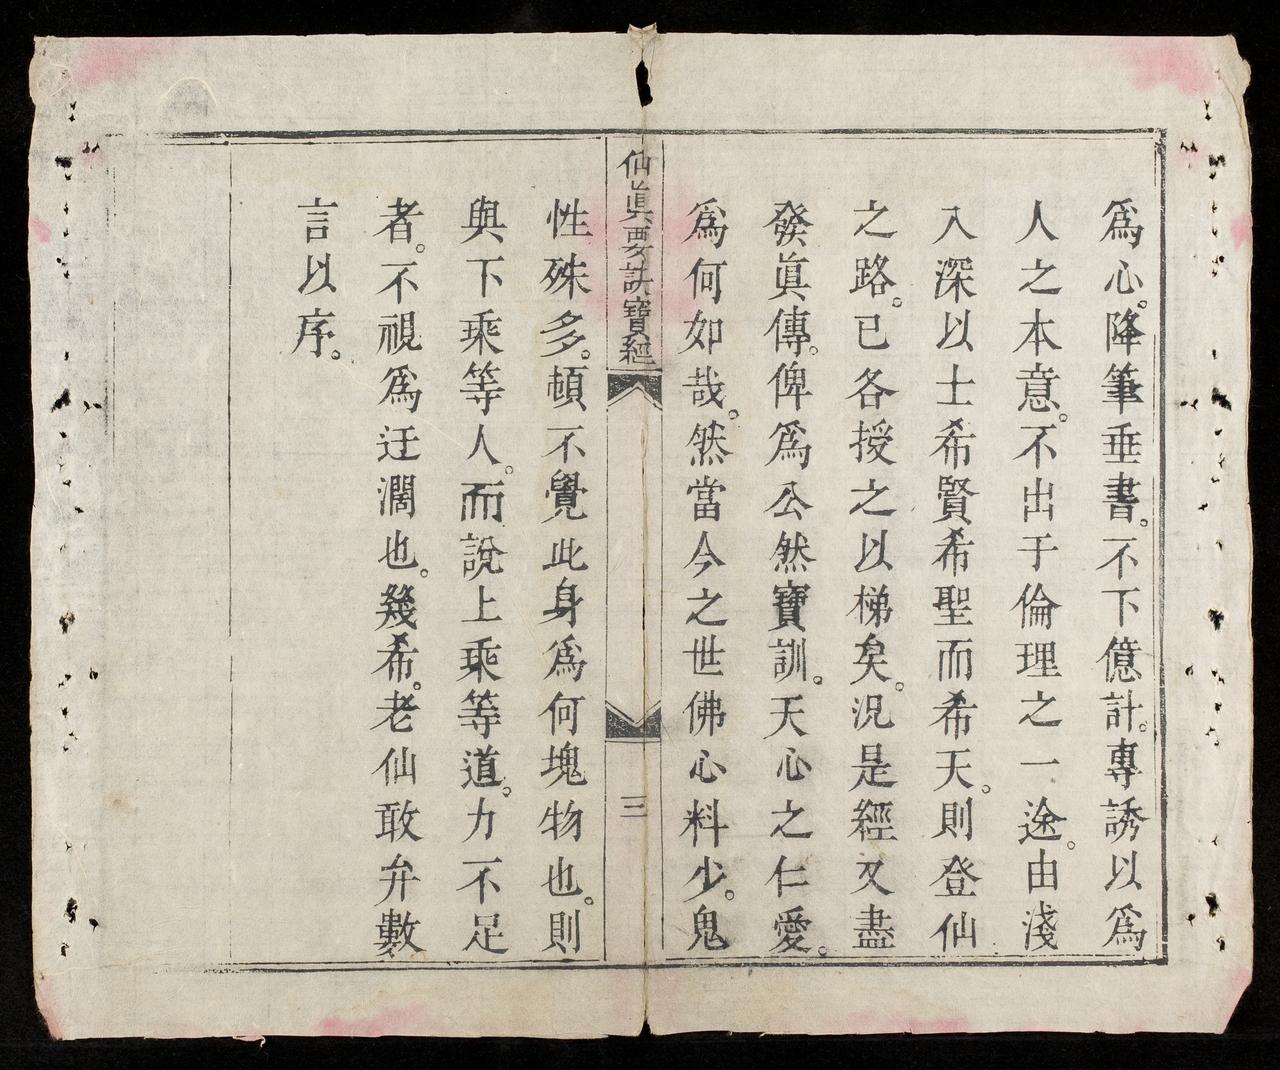 爲心。降筆垂書。不下億計。專誘以爲
人之本意。不出于倫理之一途。由淺
入深以士希賢希聖而希天。則登仙
之路。已各授之以梯矣。況是經又盡
發眞傳。俾爲公然寶訓。天心之仁愛。
爲何如哉。然當今之世佛心料少。鬼
仙眞要訣寶經
三
性殊多。頓不覺此身爲何塊物也。則
與下乘等人。而說上乘等道。力不足
者。不視爲迂濶也。幾希。老仙敢弁數
言以序。